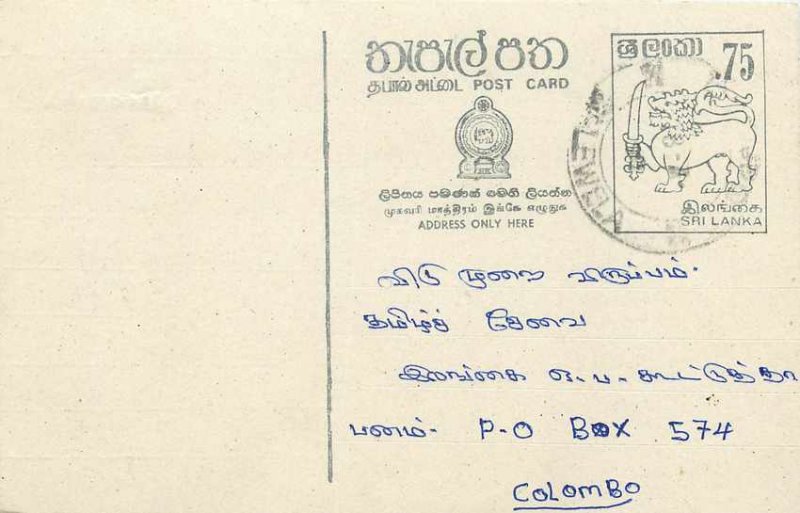 තැපැල් පත
தபால் அட்டை POST CARD
ලිපිනය පමණක් මෙහි ලියන්න
முகவரி மாத்திரம் இங்கே எழுதுக
ADDRESS ONLY HERE
ශ්‍රී ලංකා
.75
இலங்கை
SRI LANKA
விடுமுறை விருப்பம்.
தமிழ்ச் சேவை
இலங்கை ஒ.ப. கூட்டுத்தா
பனம். P.O BOX 574
COLOMBO